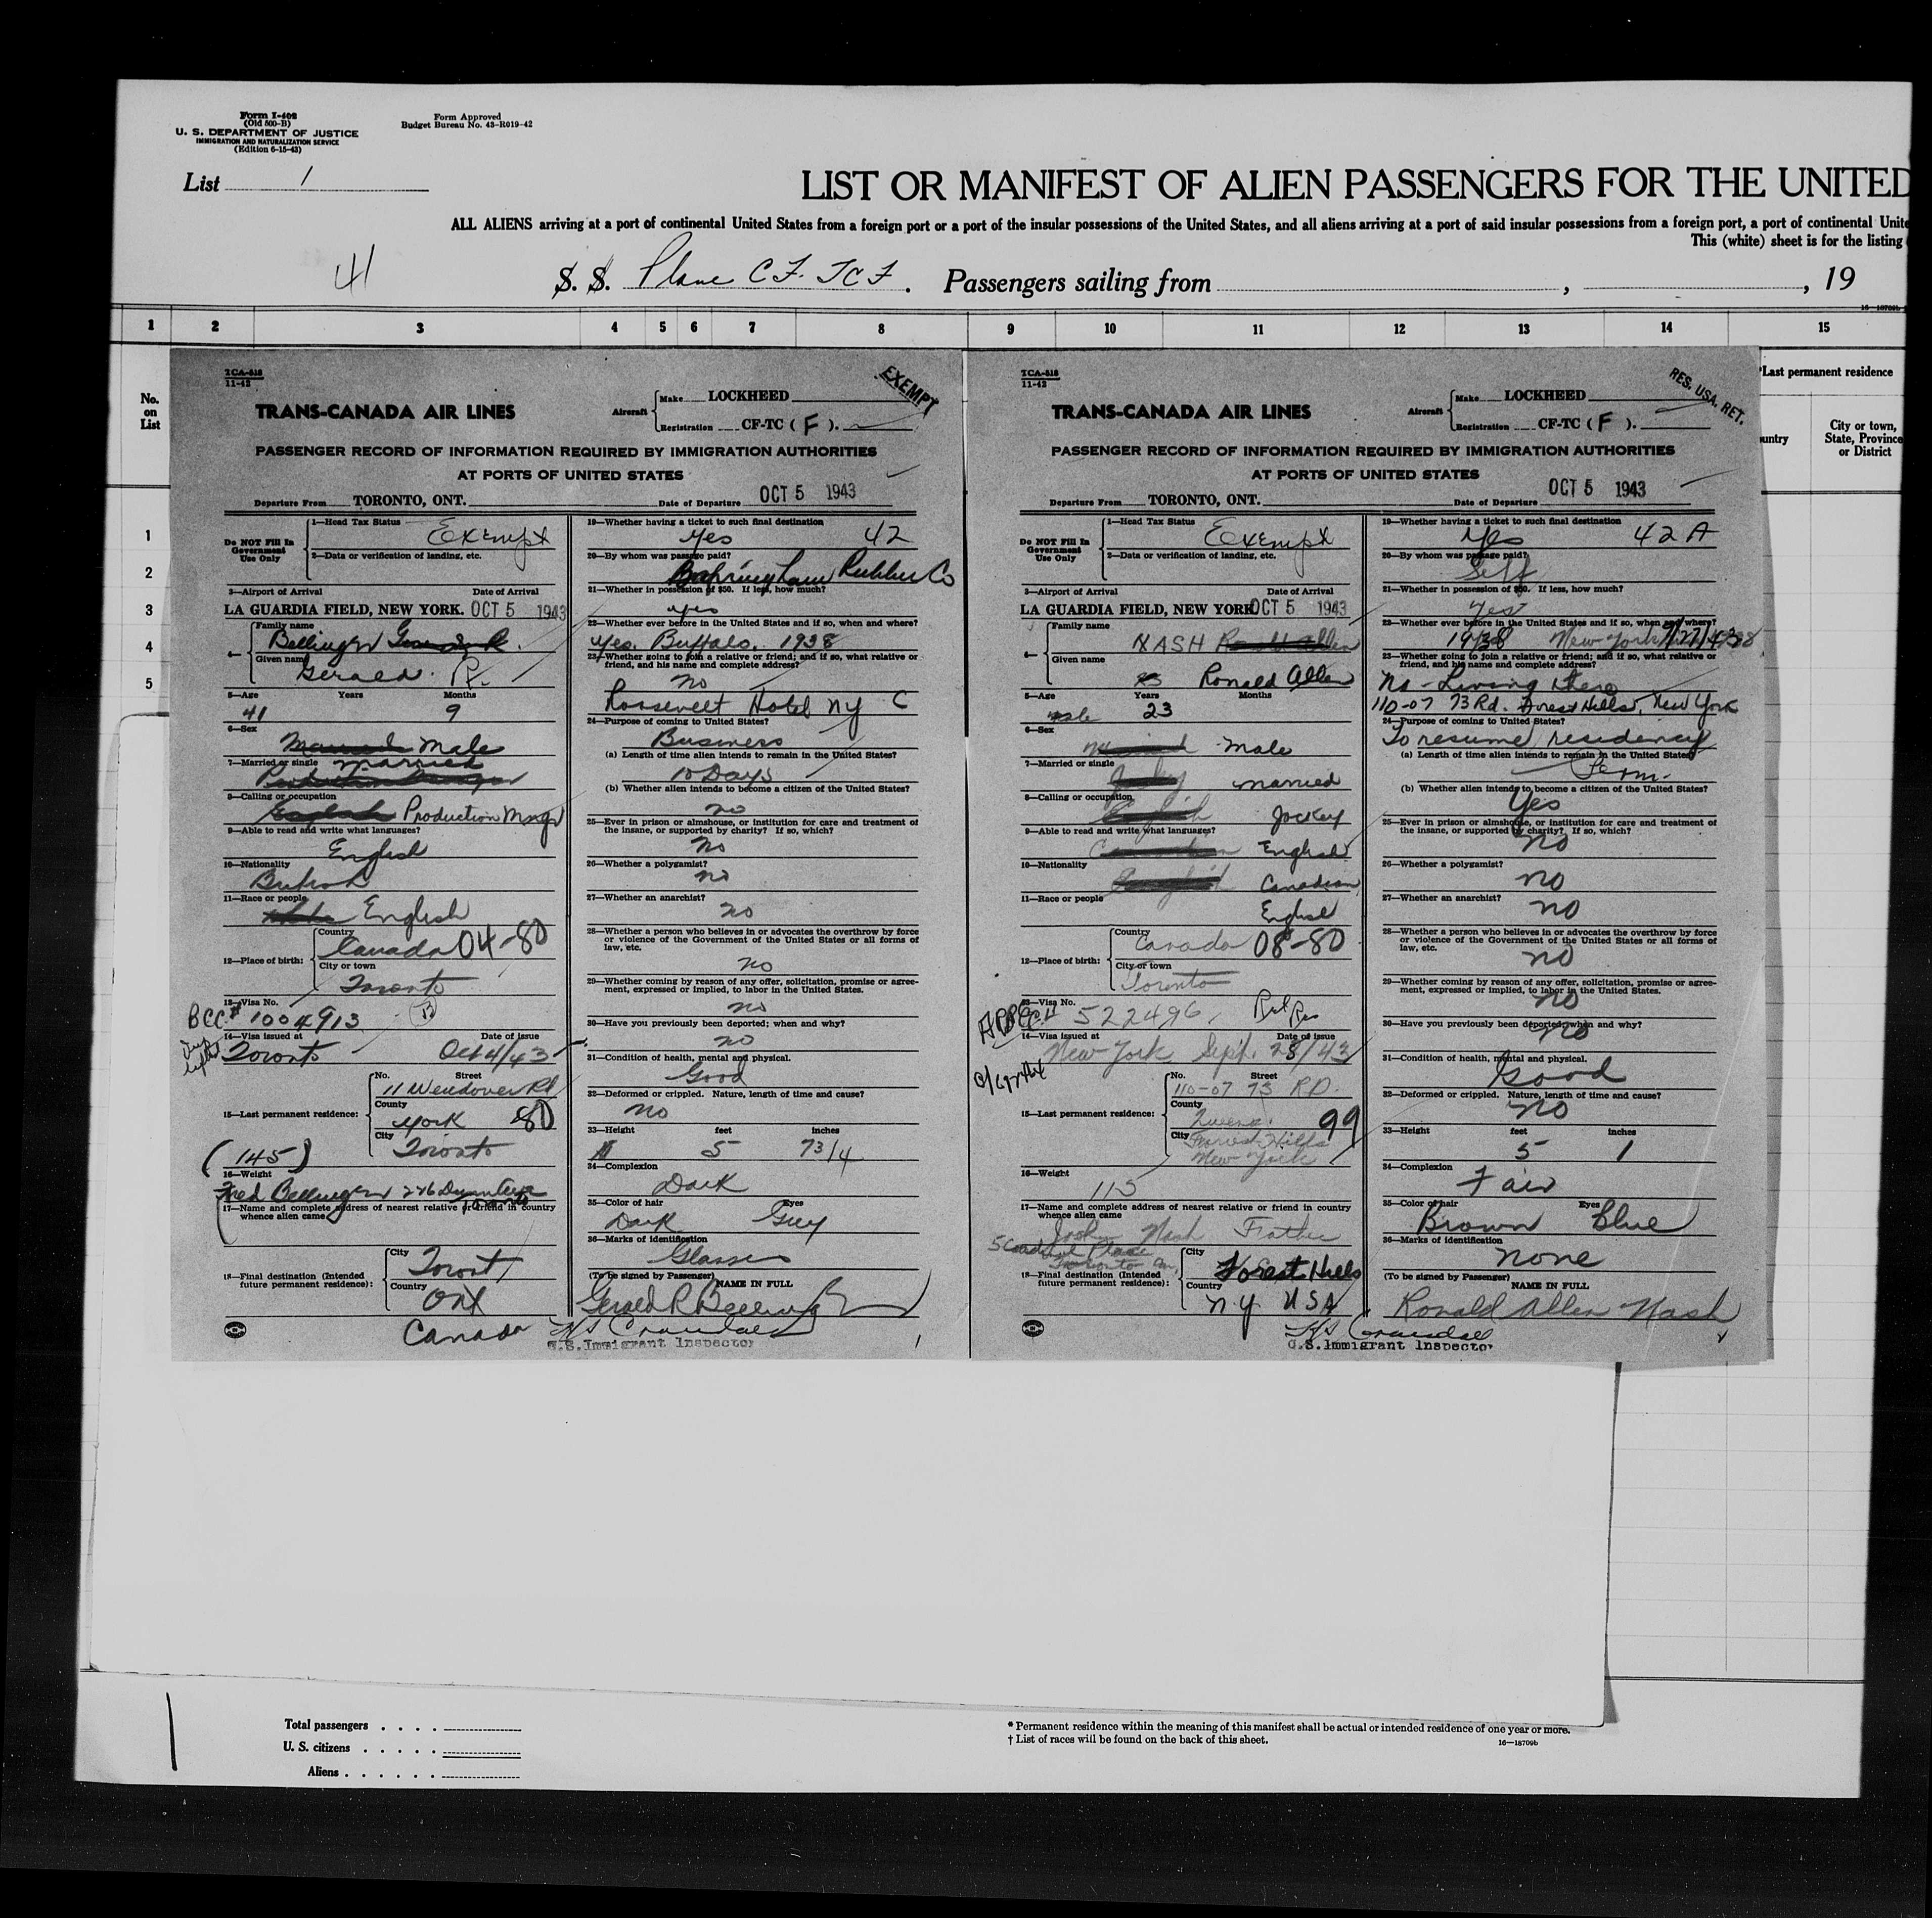 Form I-402
(Old 500-B)
U. S. DEPARTMENT OF JUSTICE
IMMIGRATION AND NATURALIZATION SERVICE
(Edition 6-15-43)
Form Approved
Budget Bureau No. 43-R019-42
List 1
LIST OR MANIFEST OF ALIEN PASSENGERS FOR THE UNITED
ALL ALIENS arriving at a port of continental United States from a foreign port or a port of the insular possessions of the United States, and all aliens arriving at a port of said insular possessions from a foreign port, a port of continental Unite
This (white) sheet is for the listing
41
S. S. Plane CF. TCF. Passengers sailing from , , 19
1 2 3 4 5 6 7 8 9 10 11 12 13 14 15
No. on List
1
2
3
4
5
TCA-518
11-42
EXEMPT
TRANS-CANADA AIR LINES
Aircraft
Make LOCKHEED
Registration CF-TC ( F ).
PASSENGER RECORD OF INFORMATION REQUIRED BY IMMIGRATION AUTHORITIES
AT PORTS OF UNITED STATES
Departure From TORONTO, ONT. Date of Departure OCT 5 1943
Do NOT Fill In
Government
Use Only
1—Head Tax Status Exempt
2—Data or verification of landing, etc.
3—Airport of Arrival Date of Arrival
LA GUARDIA FIELD, NEW YORK. OCT 5 1943
4—
Family name
Bellinger
Given name
Gerald R.
5—Age Years Months
41 9
6—Sex
Male
7—Married or single Married
8—Calling or occupation
Production Mngr
9—Able to read and write what languages?
English
10—Nationality
British
11—Race or people
English
12—Place of birth:
Country
Canada 04-80
City or town
Toronto
13—Visa No.
BCC# 1004913
14—Visa issued at Date of issue
Toronto Oct 4/43
15—Last permanent residence:
No. Street
11 Wendover Rd
County
York 80
City
Toronto
(145)
16—Weight
Fred Bellinger
17—Name and complete address of nearest relative or friend in country
whence alien came
Toronto
18—Final destination (Intended
future permanent residence):
City
Toront
Country
Ont
Canada
19—Whether having a ticket to such final destination
Yes 42
20—By whom was passage paid?
Rubber Co
21—Whether in possession of $50. If less, how much?
yes
22—Whether ever before in the United States and if so, when and where?
Yes. Buffalo. 1938
23—Whether going to join a relative or friend; and if so, what relative or
friend, and his name and complete address?
no
Roosevelt Hotel NY C
24—Purpose of coming to United States?
Business
(a) Length of time alien intends to remain in the United States?
10 Days
(b) Whether alien intends to become a citizen of the United States?
no
25—Ever in prison or almshouse, or institution for care and treatment of
the insane, or supported by charity? If so, which?
no
26—Whether a polygamist?
no
27—Whether an anarchist?
no
28—Whether a person who believes in or advocates the overthrow by force
or violence of the Government of the United States or all forms of
law, etc.
no
29—Whether coming by reason of any offer, solicitation, promise or agree-
ment, expressed or implied, to labor in the United States.
no
30—Have you previously been deported; when and why?
no
31—Condition of health, mental and physical.
Good
32—Deformed or crippled. Nature, length of time and cause?
no
33—Height feet inches
5 7 3/4
34—Complexion
Dark
35—Color of hair Eyes
Dark Grey
36—Marks of identification
Glasses
(To be signed by Passenger) NAME IN FULL
Gerald R Bellinger
U.S. Immigrant Inspector
TCA-518
11-42
RES. USA. RET.
TRANS-CANADA AIR LINES
Aircraft
Make LOCKHEED
Registration CF-TC ( F ).
PASSENGER RECORD OF INFORMATION REQUIRED BY IMMIGRATION AUTHORITIES
AT PORTS OF UNITED STATES
Departure From TORONTO, ONT. Date of Departure OCT 5 1943
Do NOT Fill In
Government
Use Only
1—Head Tax Status Exempt
2—Data or verification of landing, etc.
3—Airport of Arrival Date of Arrival
LA GUARDIA FIELD, NEW YORK OCT 5 1943
4—
Family name
NASH
Given name
Ronald Allen
5—Age Years Months
23
6—Sex
Male
7—Married or single
married
8—Calling or occupation
Jockey
9—Able to read and write what languages?
English
10—Nationality
Canadian
11—Race or people
English
12—Place of birth:
Country
Canada 08-80
City or town
Toronto
13—Visa No.
522496
14—Visa issued at Date of issue
New York Sept. 28/43
15—Last permanent residence:
No. Street
110-07 73 RD.
County
Queens 99
City
Forest Hills
New York
16—Weight
115
17—Name and complete address of nearest relative or friend in country
whence alien came
John Nash Father
18—Final destination (Intended
future permanent residence):
City
Forest Hills
Country
N.Y. USA
19—Whether having a ticket to such final destination
Yes 42 A
20—By whom was passage paid?
Self
21—Whether in possession of $50. If less, how much?
Yes
22—Whether ever before in the United States and if so, when and where?
1938 New York
23—Whether going to join a relative or friend; and if so, what relative or
friend, and his name and complete address?
No - Living there
110-07 73 Rd. Forest Hills, New York
24—Purpose of coming to United States?
To resume residency
(a) Length of time alien intends to remain in the United States?
Perm.
(b) Whether alien intends to become a citizen of the United States?
Yes
25—Ever in prison or almshouse, or institution for care and treatment of
the insane, or supported by charity? If so, which?
no
26—Whether a polygamist?
no
27—Whether an anarchist?
no
28—Whether a person who believes in or advocates the overthrow by force
or violence of the Government of the United States or all forms of
law, etc.
no
29—Whether coming by reason of any offer, solicitation, promise or agree-
ment, expressed or implied, to labor in the United States.
no
30—Have you previously been deported; when and why?
no
31—Condition of health, mental and physical.
Good
32—Deformed or crippled. Nature, length of time and cause?
no
33—Height feet inches
5 1
34—Complexion
Fair
35—Color of hair Eyes
Brown Blue
36—Marks of identification
none
(To be signed by Passenger) NAME IN FULL
Ronald Allen Nash
U.S. Immigrant Inspector
*Last permanent residence
untry
City or town,
State, Province
or District
Total passengers . . . .
U. S. citizens . . . . .
Aliens . . . . . .
* Permanent residence within the meaning of this manifest shall be actual or intended residence of one year or more.
† List of races will be found on the back of this sheet.
16—18709b